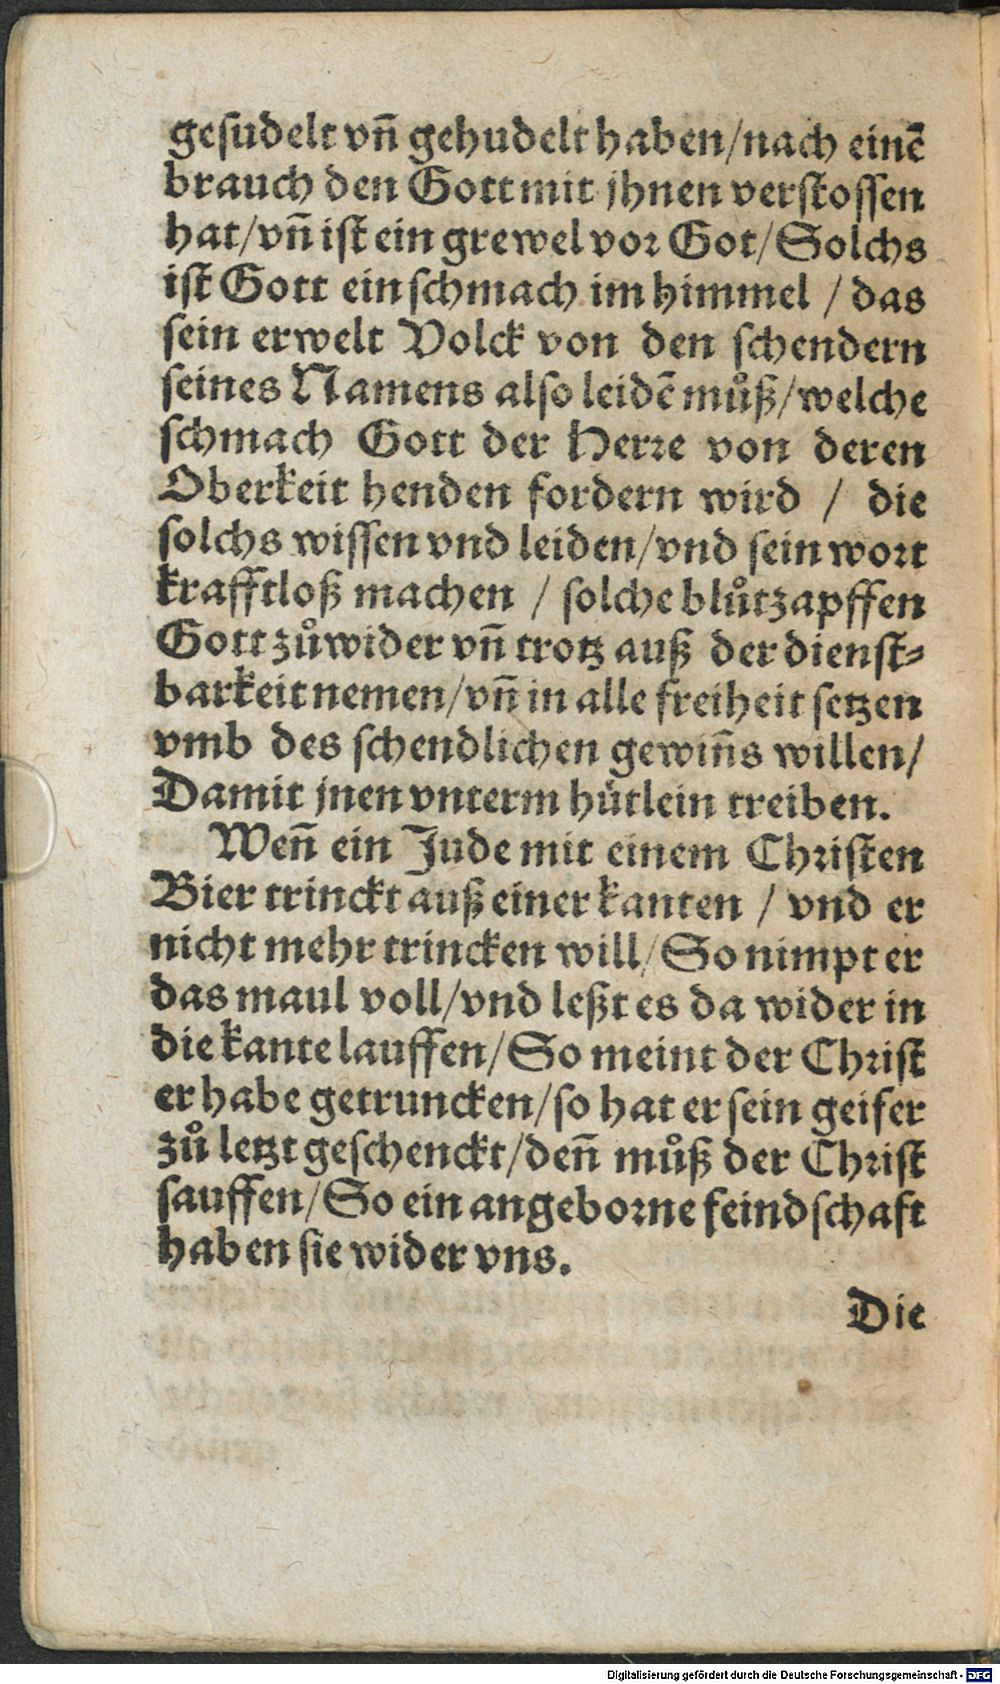 gesudelt vñ gehudelt haben/nach einẽ
brauch den Gott mit jhnen verstossen
hat/vñ ist ein grewel vor Got/Solchs
ist Gott ein schmach im himmel / das
sein erwelt Volck von den schendern
seines Namens also leidẽ můß/welche
schmach Gott der Herre von deren
Oberkeit henden fordern wird / die
solchs wissen vnd leiden/vnd sein wort
krafftloß machen / solche blůtzapffen
Gott zůwider vñ trotz auß der dienst-
barkeit nemen/vñ in alle freiheit setzen
vmb des schendlichen gewiñs willen/
Damit jnen vnterm hütlein treiben.
Weñ ein Jude mit einem Christen
Bier trinckt auß einer kanten / vnd er
nicht mehr trincken will/So nimpt er
das maul voll/vnd leßt es da wider in
die kante lauffen/So meint der Christ
er habe getruncken/so hat er sein geifer
zů letzt geschenckt/deñ můß der Christ
sauffen/So ein angeborne feindschaft
haben sie wider vns.
Die
Digitalisierung gefördert durch die Deutsche Forschungsgemeinschaft - DFG